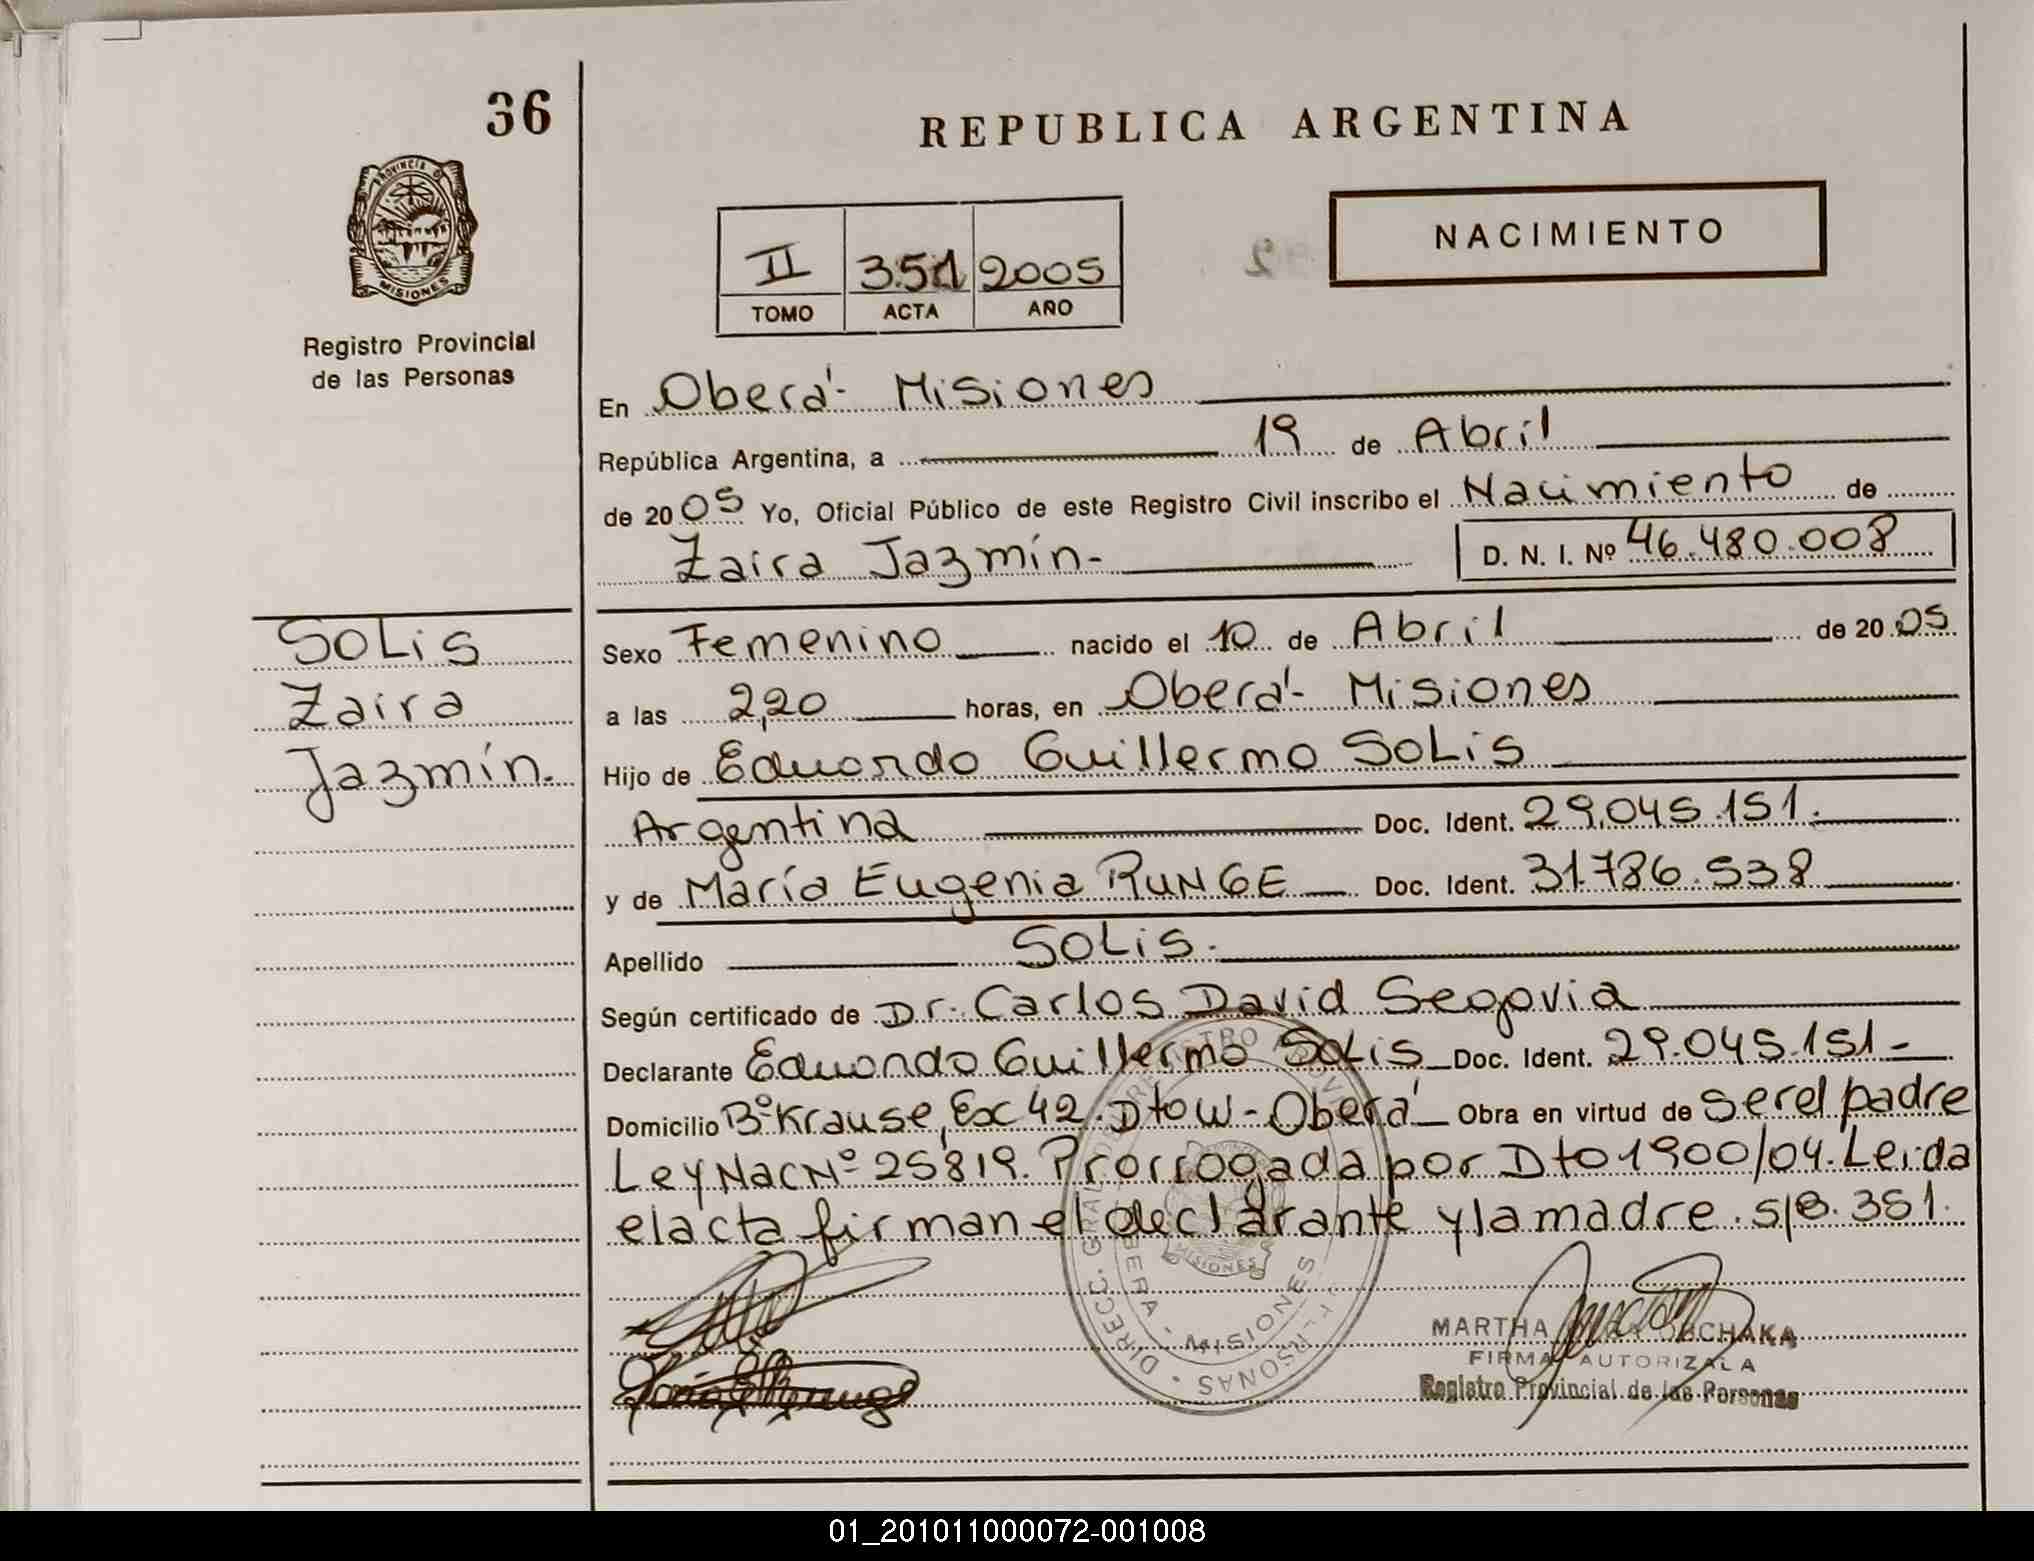 36
REPUBLICA ARGENTINA
PROVINCIA D
MISIONES
NACIMIENTO
II 351 2005
TOMO ACTA AÑO
Registro Provincial
de las Personas
En Oberá- Misiones
República Argentina, a 19 de Abril
de 2005 Yo, Oficial Público de este Registro Civil inscribo el Nacimiento de
Zaira Jazmín- D. N. I. Nº 46.480.008
SOLis
Zaira
Jazmín.
Sexo Femenino nacido el 10 de Abril de 2005
a las 2,20 horas, en Oberá- Misiones
Hijo de Eduardo Guillermo SOLis
Argentina Doc. Ident. 29.045.151.
y de María Eugenia RUNGE Doc. Ident. 31.786.538
Apellido SOLis.
Según certificado de Dr. Carlos David Segovia
Declarante Eduardo Guillermo SOLis Doc. Ident. 29.045.151-
Domicilio Bº Krause, Ex 42. Dto W- Oberá Obra en virtud de ser el padre
Ley Nac Nº 25819. Prorrogada por Dto 1900/04. Leida
el acta firman el declarante y la madre. s/B. 351.
MISIONES
MISIONES
MARTHA
FIRMA AUTORIZADA
Registro Provincial de las Personas
01_201011000072-001008